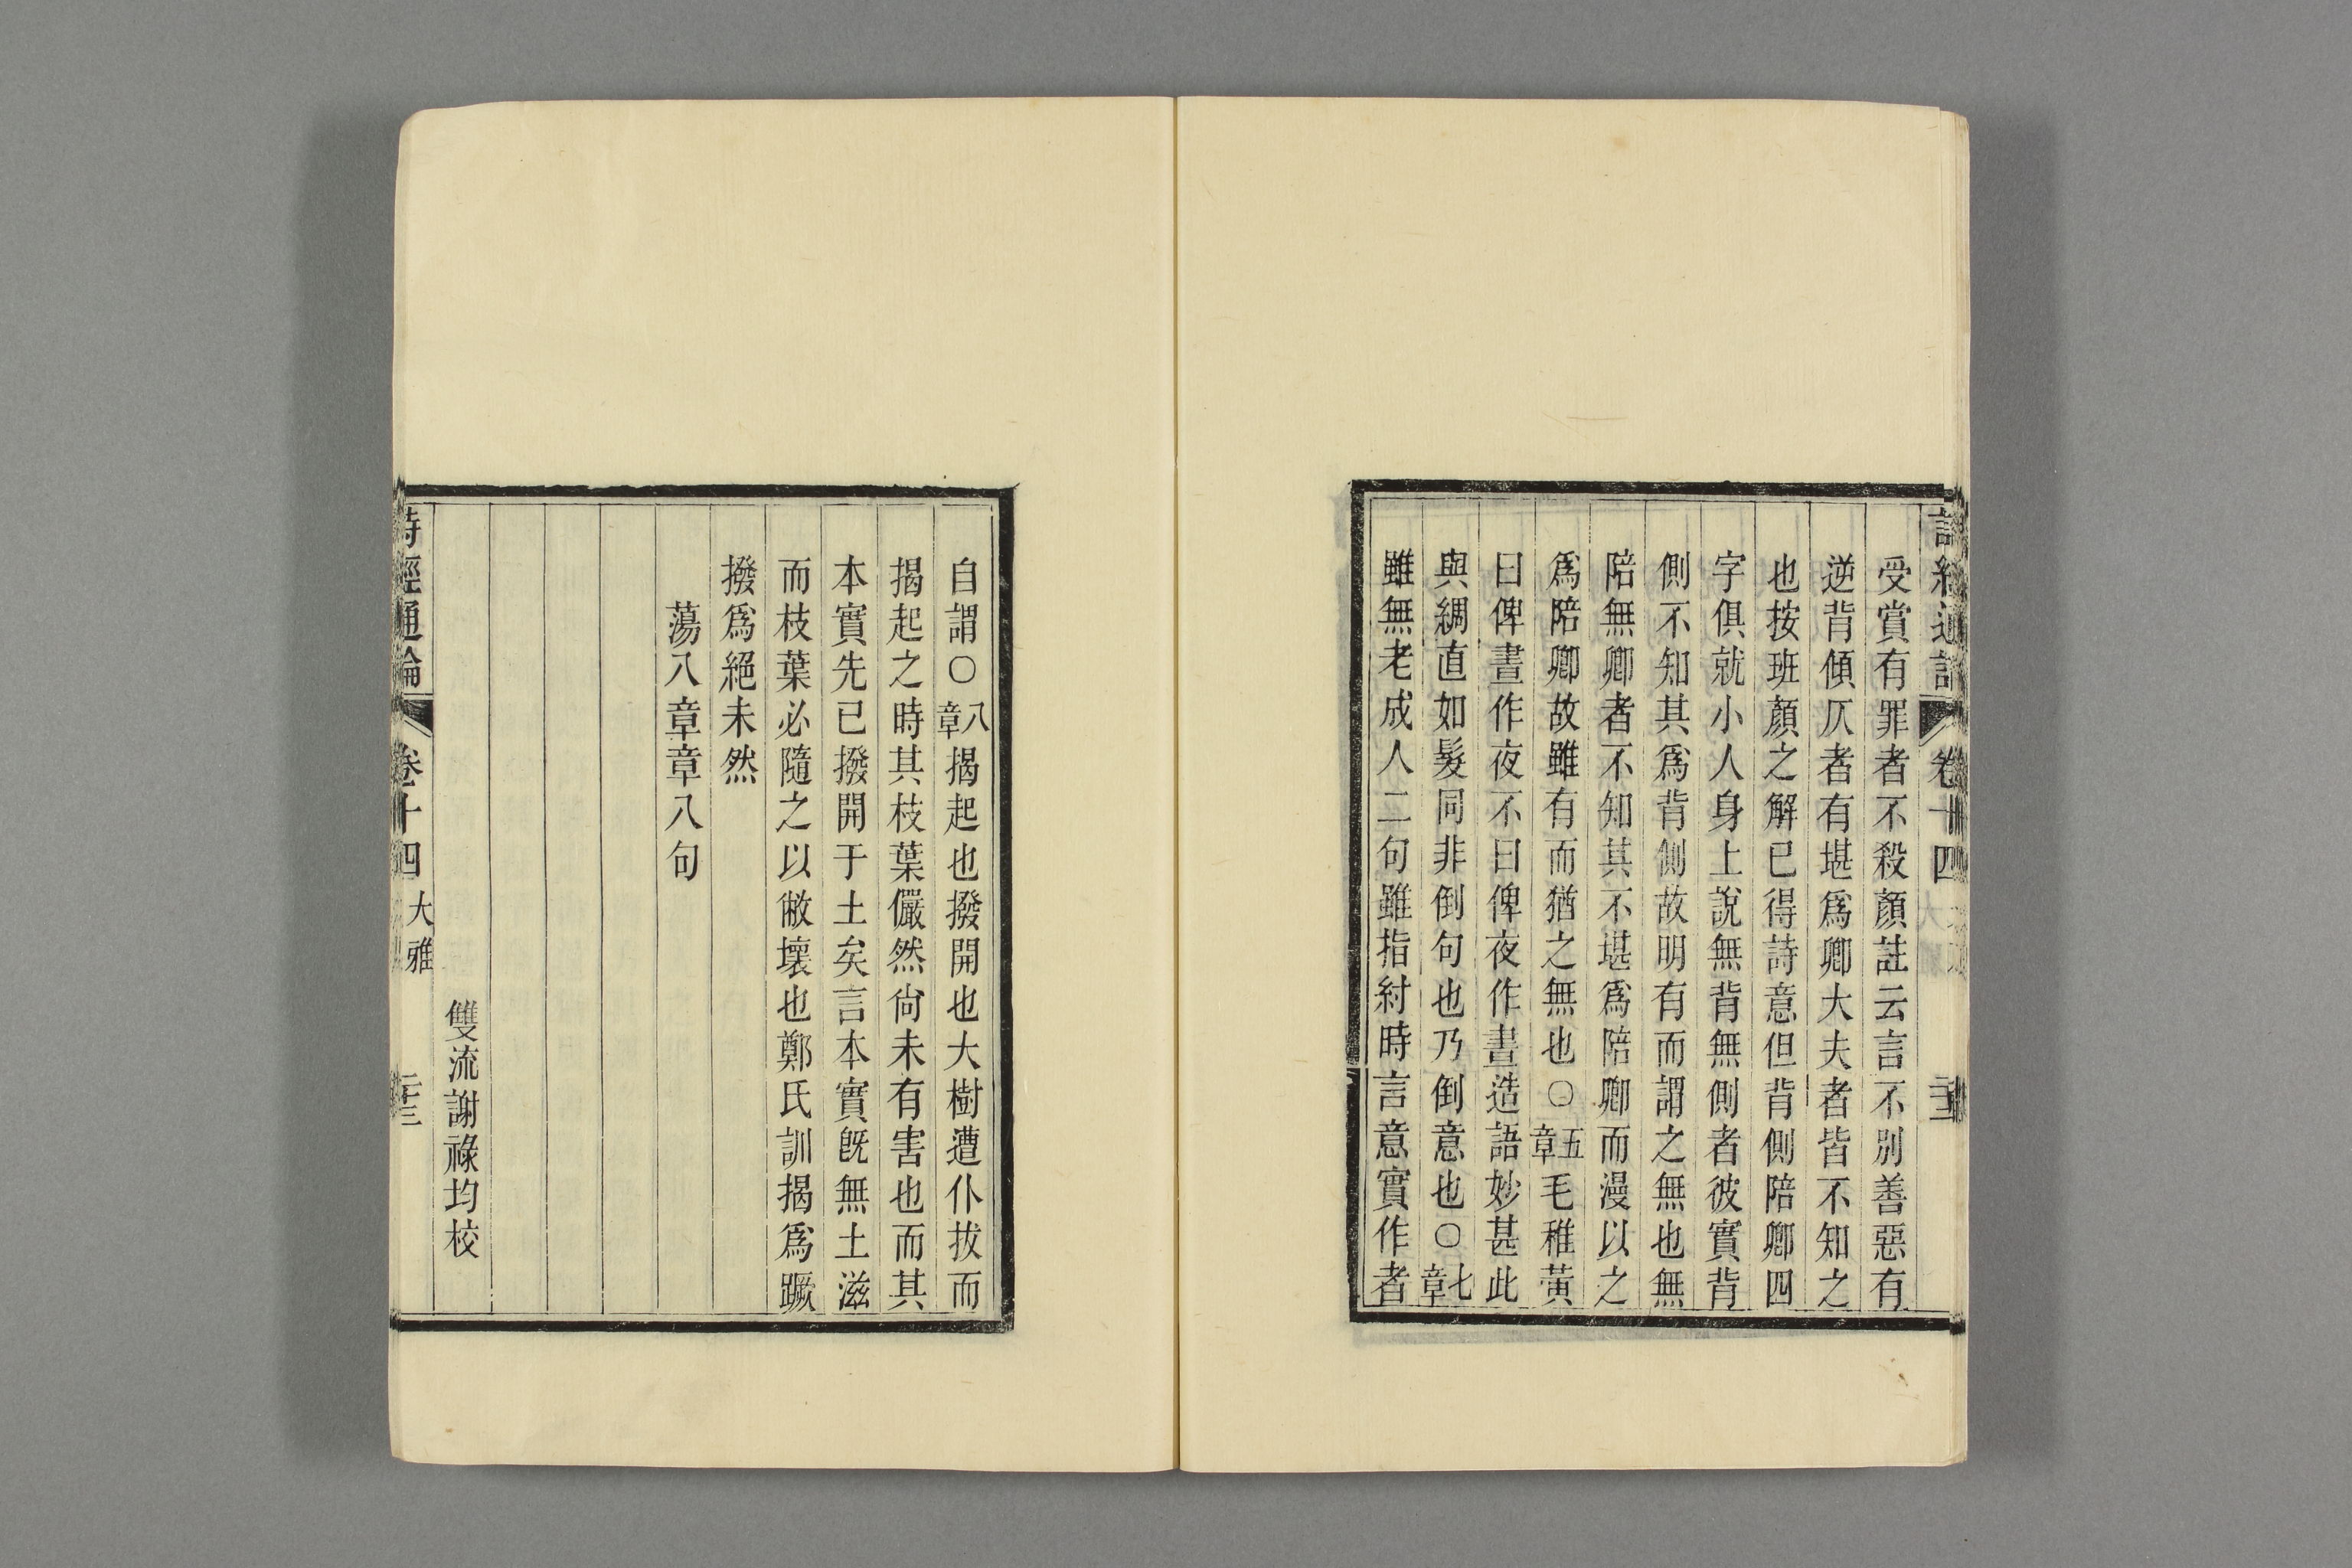 受賞有罪者不殺顏註云言不別善惡有
逆背傾仄者有堪爲卿大夫者皆不知之
也按班顏之解已得詩意但背側陪卿四
字俱就小人身上說無背無側者彼實背
側不知其爲背側故明有而謂之無也無
陪無卿者不知其不堪爲陪卿而漫以之
爲陪卿故雖有而猶之無也○五章毛稚黃
曰俾晝作夜不曰俾夜作晝造語妙甚此
與綢直如髮同非倒句也乃倒意也○七章
雖無老成人二句雖指紂時言意實作者
自謂○八章揭起也撥開也大樹遭仆拔而
揭起之時其枝葉儼然尙未有害也而其
本實先已撥開于土矣言本實旣無土滋
而枝葉必隨之以敝壞也鄭氏訓揭爲蹶
撥爲絕未然
蕩八章章八句
雙流謝祿均校
詩經通論 卷十四 大雅 二十三